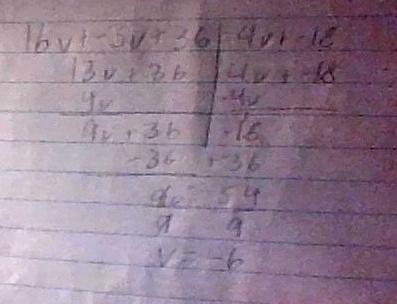 16v+-3v+36 | 4v+-18
13v+36 | 4v+-18
4v -4v
9v+36 | -18
-36 +-36
9v 54
9 9
v=-6